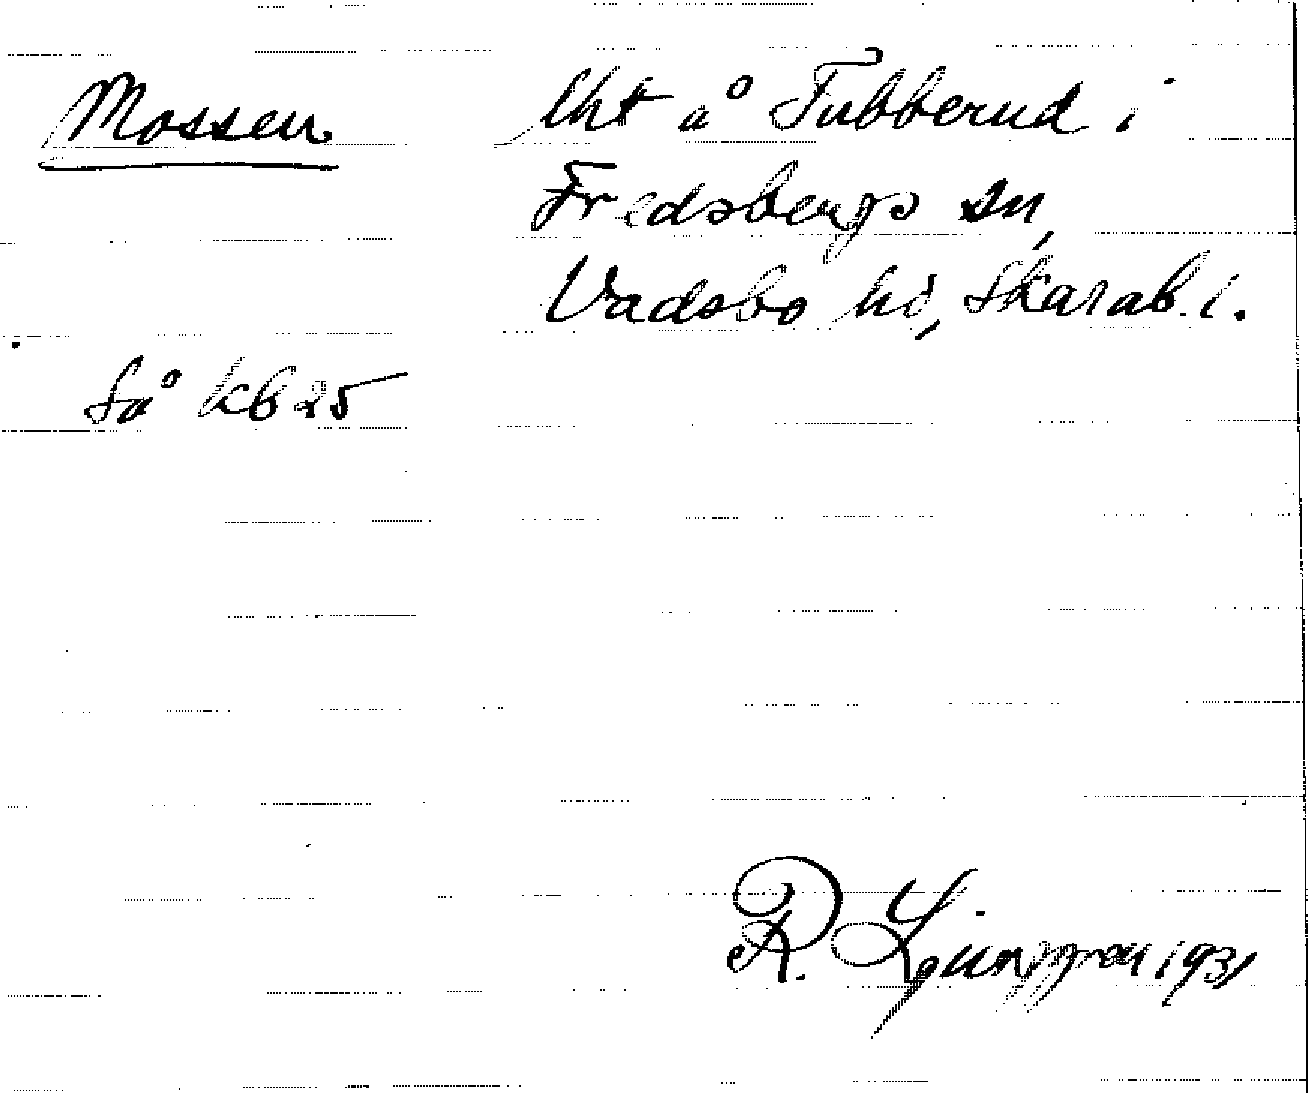 Mossen
lht å Tubberud i
Fredsbergs sn,
Vadsbo hd, Skarab. l.
Så kb 25
R. Ljunggren 1931